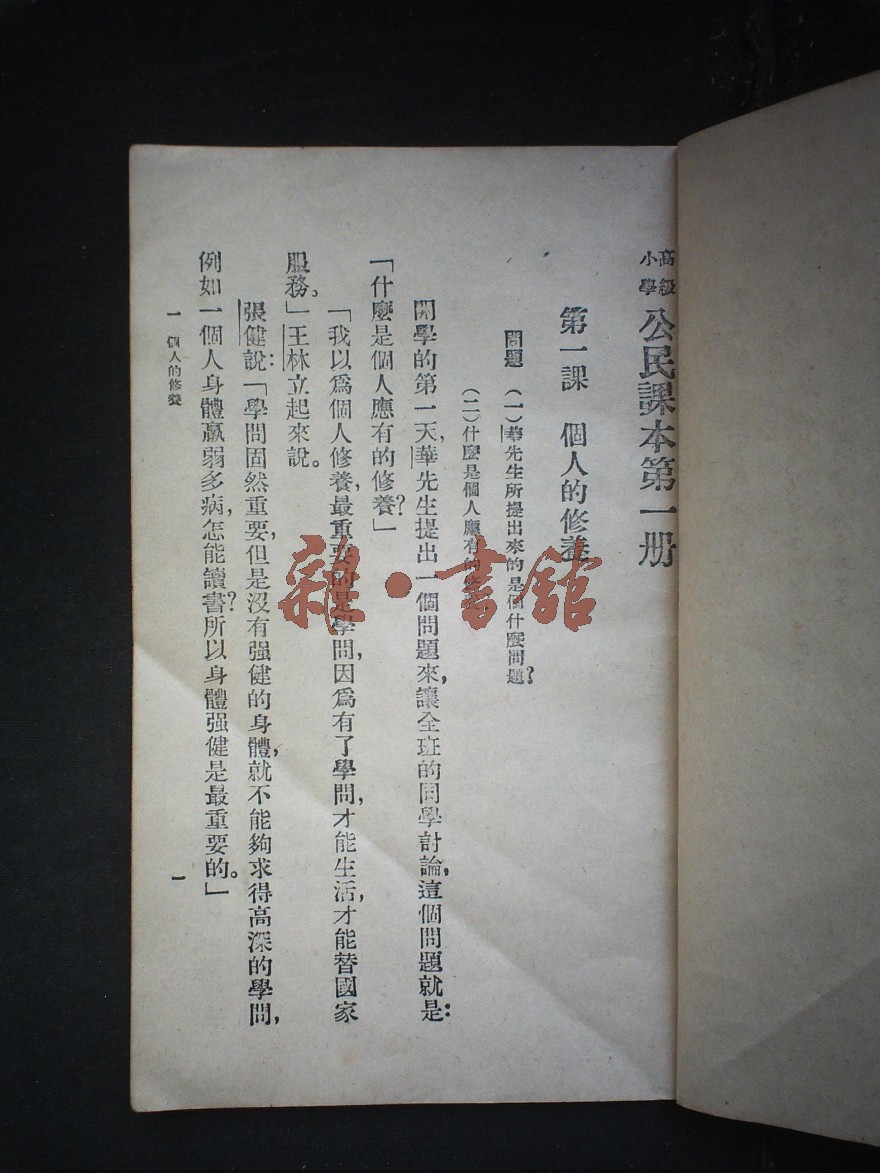 高級小學 公民課本第一册
第一課 個人的修養
問題 (一)華先生所提出來的是個什麼問題?
(二)什麼是個人應有的修養
開學的第一天,華先生提出一個問題來,讓全班的同學討論,這個問題就是:
「什麼是個人應有的修養?」
「我以爲個人修養,最重要的是學問,因爲有了學問,才能生活,才能替國家
服務。」王林立起來說。
張健說:「學問固然重要,但是沒有强健的身體,就不能夠求得高深的學問,
例如一個人身體羸弱多病,怎能讀書?所以身體强健是最重要的。」
一 個人的修養
一
雜·書館